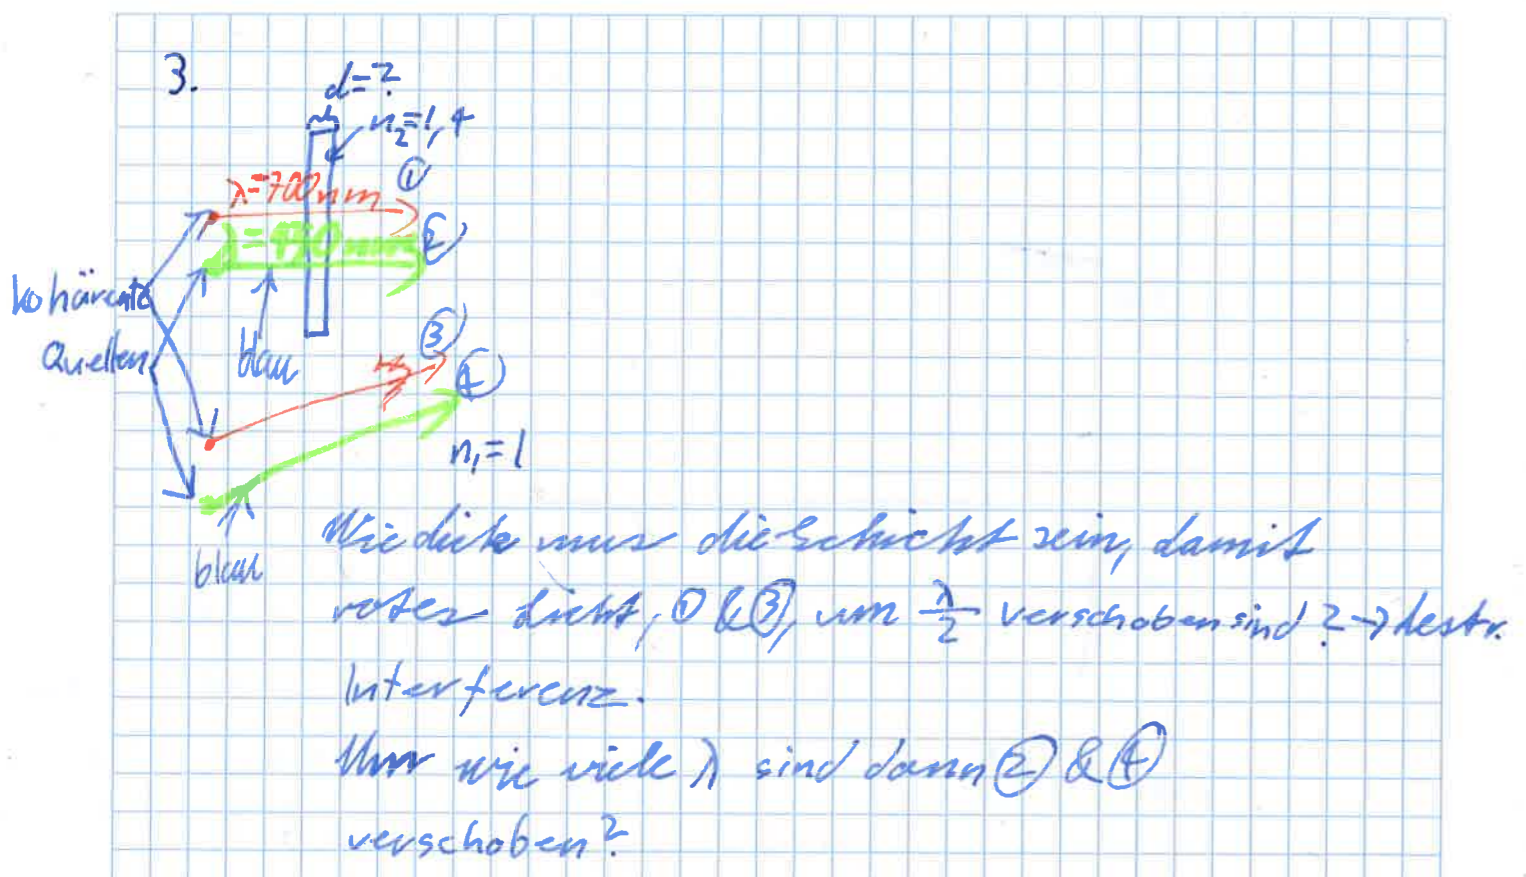 3.
d=?
n₂=1,4
①
λ=700nm
②
λ=450nm
kohärente
Quellen
blau
③
④
n₁=1
blau
Wie dick mus die Schicht sein, damit
rotes Licht, ① & ③, um λ/2 verschoben sind? → destr.
Interferenz.
Um wie viele λ sind dann ② & ④
verschoben?